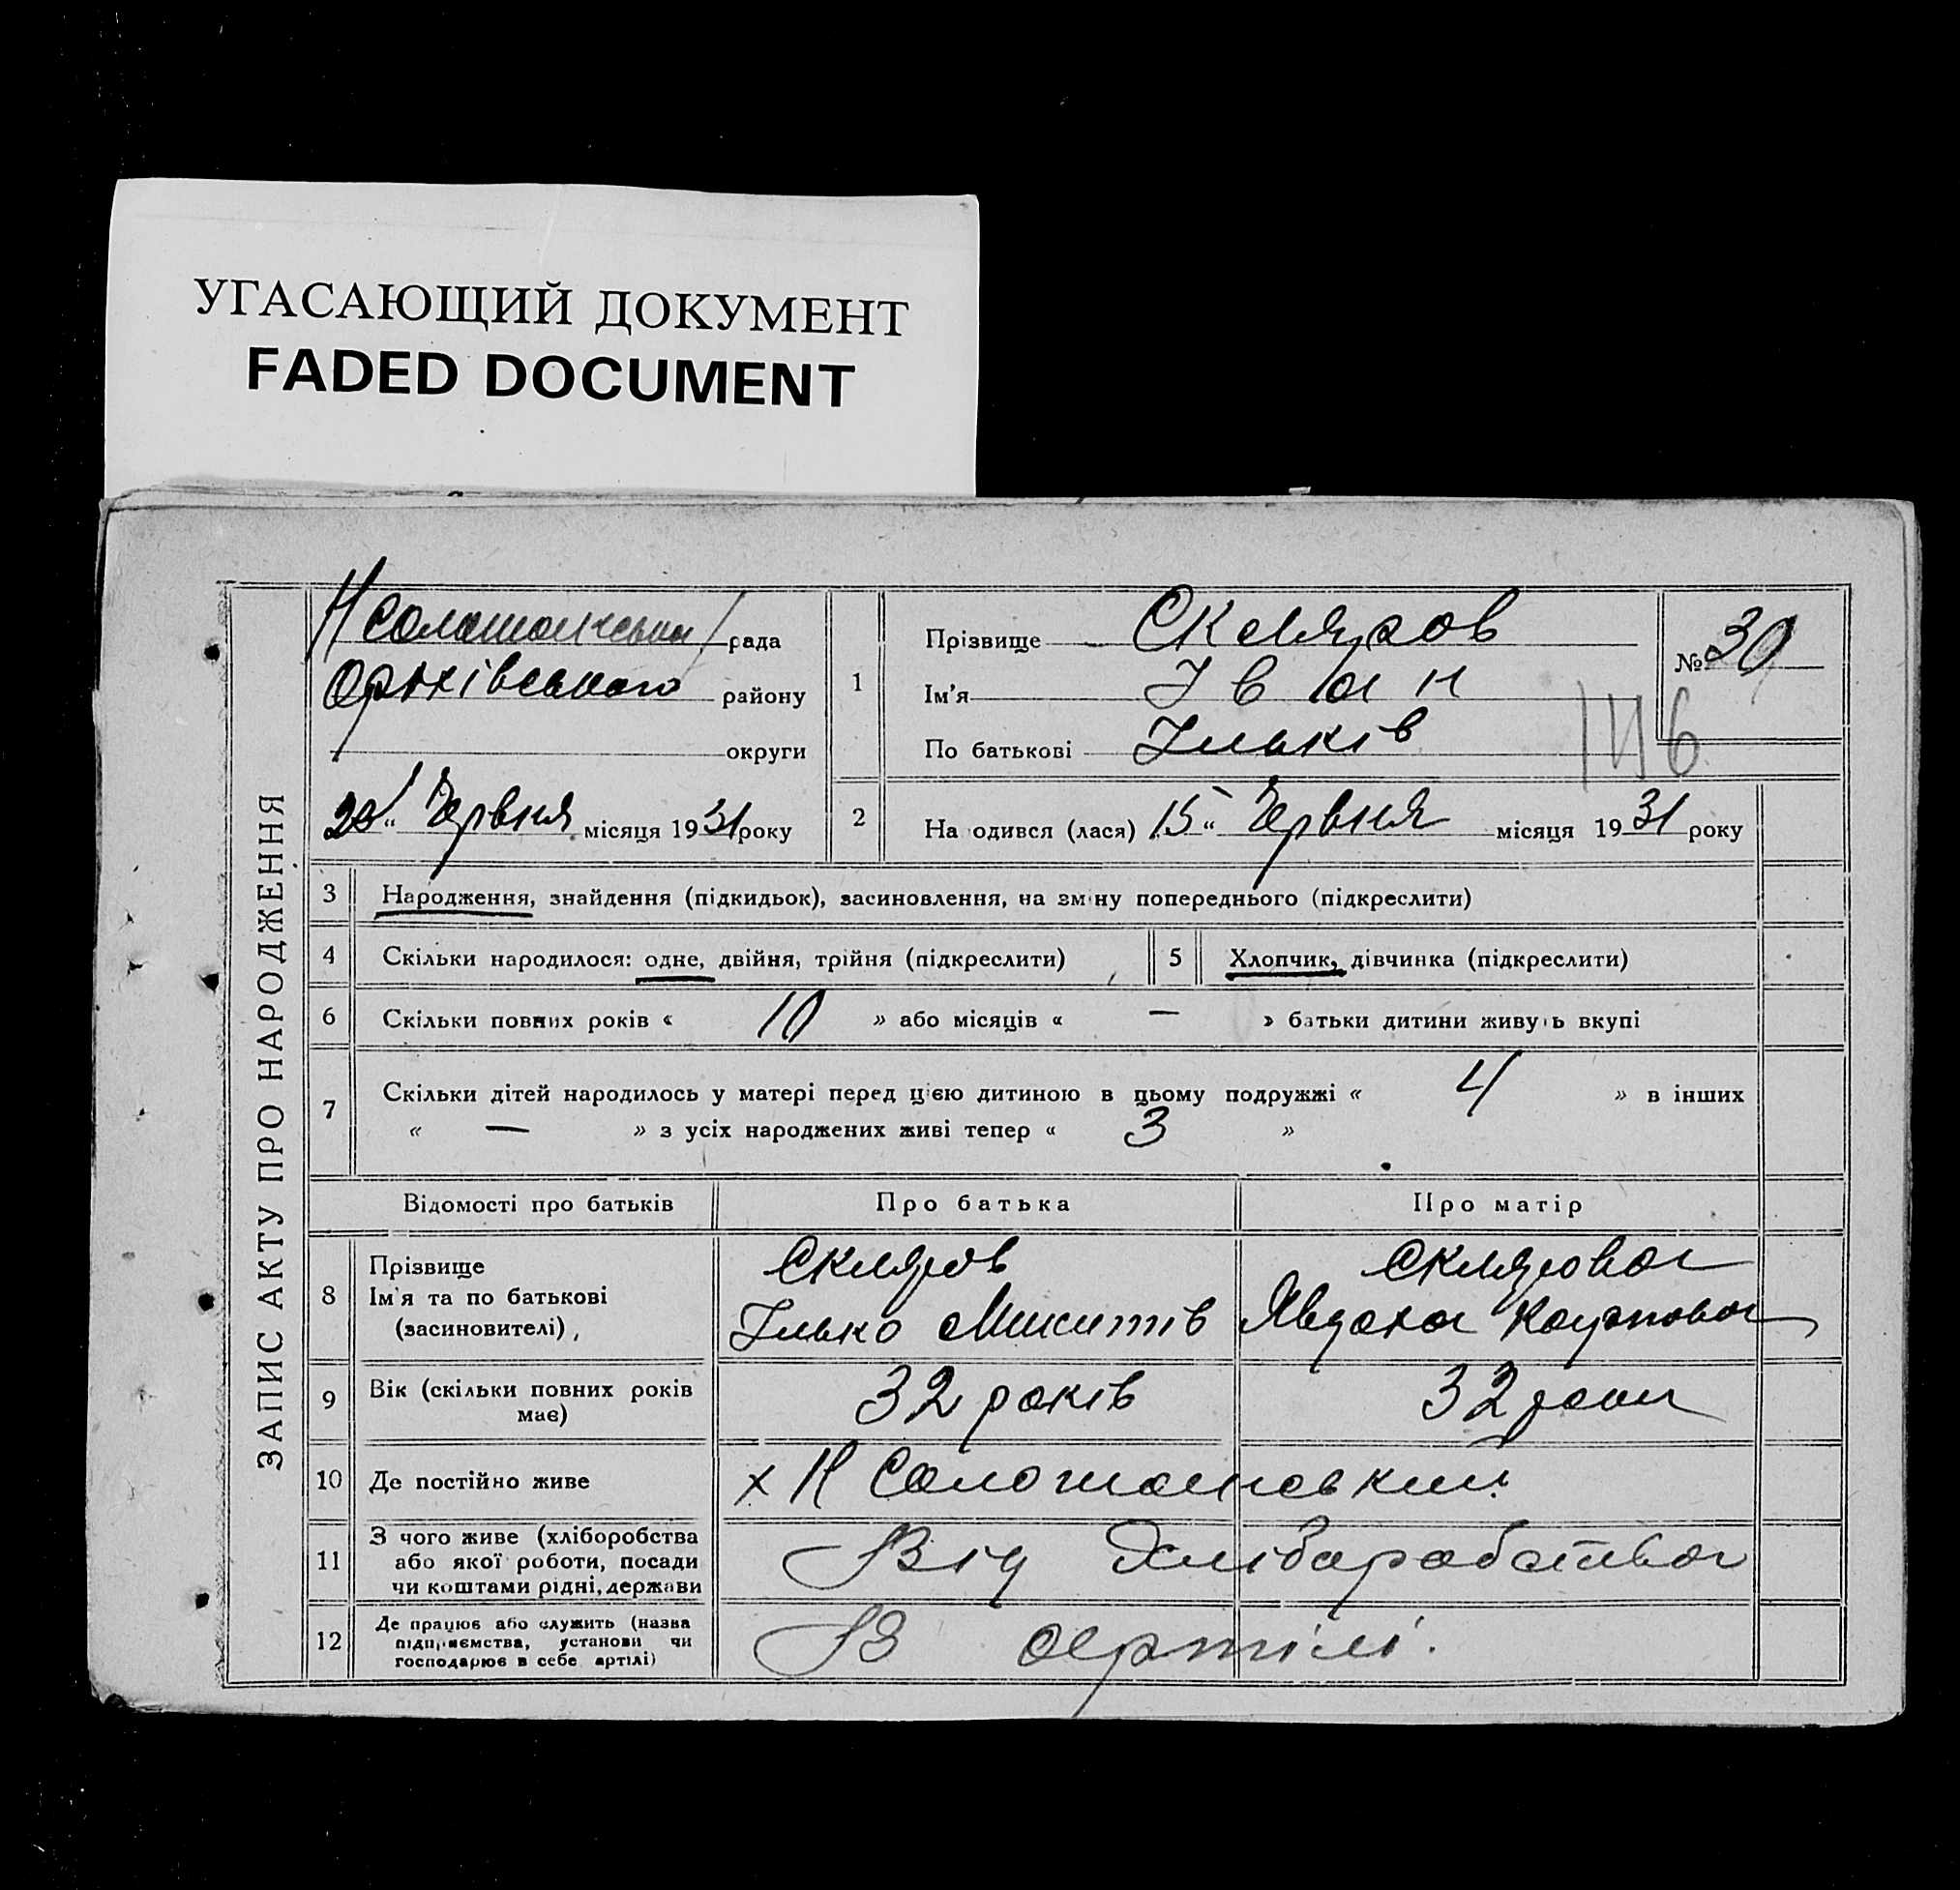 УГАСАЮЩИЙ ДОКУМЕНТ
FADED DOCUMENT
ЗАПИС АКТУ ПРО НАРОДЖЕННЯ
рада
району
округи
20 " Червня місяця 1931 року
1
Прізвище Скляров
Ім'я Іван
По батькові Ільків
№ 30
146
2
На одився (лася) 15 " Червня місяця 1931 року
3 Народження, знайдення (підкидьок), засиновлення, на зміну попереднього (підкреслити)
4 Скільки народилося: одне, двійня, трійня (підкреслити)
5 Хлопчик, дівчинка (підкреслити)
6 Скільки повних років « 10 » або місяців « — » батьки дитини живуть вкупі
7 Скільки дітей народилось у матері перед цією дитиною в цьому подружжі « 4 » в інших
« — » з усіх народжених живі тепер « 3 »
Відомості про батьків Про батька Про матір
8 Прізвище
Ім'я та по батькові
(засиновителі)
Скляров
Ілько Микитів
Склярова
Явдоха Карпова
9 Вік (скільки повних років
має)
32 років
32 роки
10 Де постійно живе
х Н
11 З чого живе (хліборобства
або якої роботи, посади
чи коштами рідні, держави
Від Хліборобства
12 Де працює або служить (назва
підприємства, установи чи
господарює в себе артілі)
В артілі.